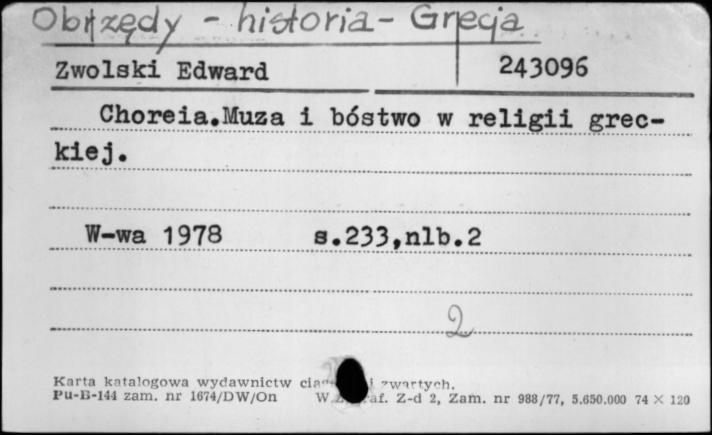 Obrzędy - historia - Grecja
Zwolski Edward 243096
Choreia.Muza i bóstwo w religii grec-
kiej.
W-wa 1978 s.233,nlb.2
2
Karta katalogowa wydawnictw i zwartych.
Pu-B-144 zam. nr 1674/DW/On Z-d 2, Zam. nr 988/77, 5.650.000 74 × 120